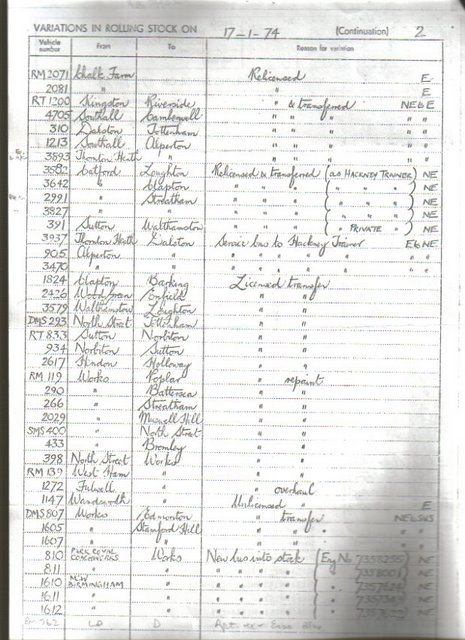 VARIATIONS IN ROLLING STOCK ON 17-1-74 (Continuation) 2
Vehicle number From To Reason for variation
RM 2071 Chalk Farm Relicensed E
2081 " " E
RT 1200 Kingston Riverside " & transferred NE & E
4705 Southall Camberwell " " " "
310 Dalston Tottenham " " " "
1213 Southall Alperton " " " "
3893 Thornton Heath " " " " "
Catford Loughton Relicensed & transferred (as HACKNEY TRAINER) NE
3642 " Clapton " " " " " " NE
2991 " Streatham " " " " " " NE
3827 " " " " " " " " NE
391 Sutton Walthamstow " " " " PRIVATE " NE
3937 Thornton Heath Dalston Service bus to Hackney Trainer E & NE
905 Alperton " " " " " " " "
3470 " " " " " " " " "
1824 Clapton Barking Licensed transfer
2426 Enfield " "
3579 Walthamstow Leyton " "
DMS 293 North Street Tottenham " "
RT 833 Sutton Norbiton " "
934 Norbiton Sutton " "
2617 Hendon Holloway " "
RM 119 Works Poplar " repaint
290 " Battersea " "
266 " Streatham " "
2029 " Muswell Hill " "
SMS 400 " North Street " "
433 " Bromley " "
398 North Street Works " "
RM 139 West Ham " " "
1272 Fulwell " " overhaul
1147 Wandsworth " Unlicensed " E
DMS 807 Works Edmonton " transfer NE & SMS
1605 " Stamford Hill " " "
1607 " " " " "
810 PARK ROYAL COACHWORKS Works New bus into stock (Eng No NE
811 " " " " " " NE
1610 M.C.W. BIRMINGHAM " " " " " NE
1611 " " " " " " NE
1612 " " " " " " NE